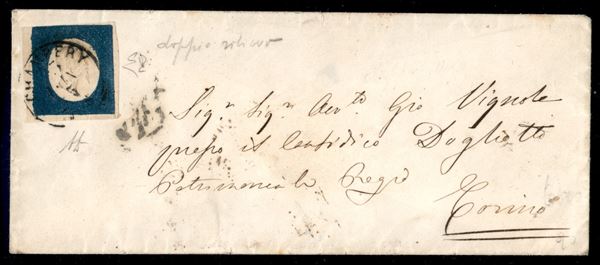 CHAMBERY
doppio rilievo
Sig.r Sig.r Avv.to Gio Vignole
presso il Causidico Doglietto
Patrimoniale Regio
Torino